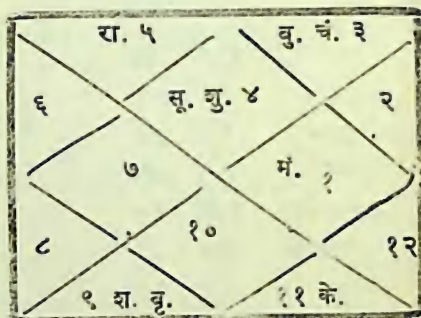 रा. ५ बु. चं. ३
६ सू. शु. ४ २
७ मं. १
८ १० १२
९ श. वृ. ११ के.